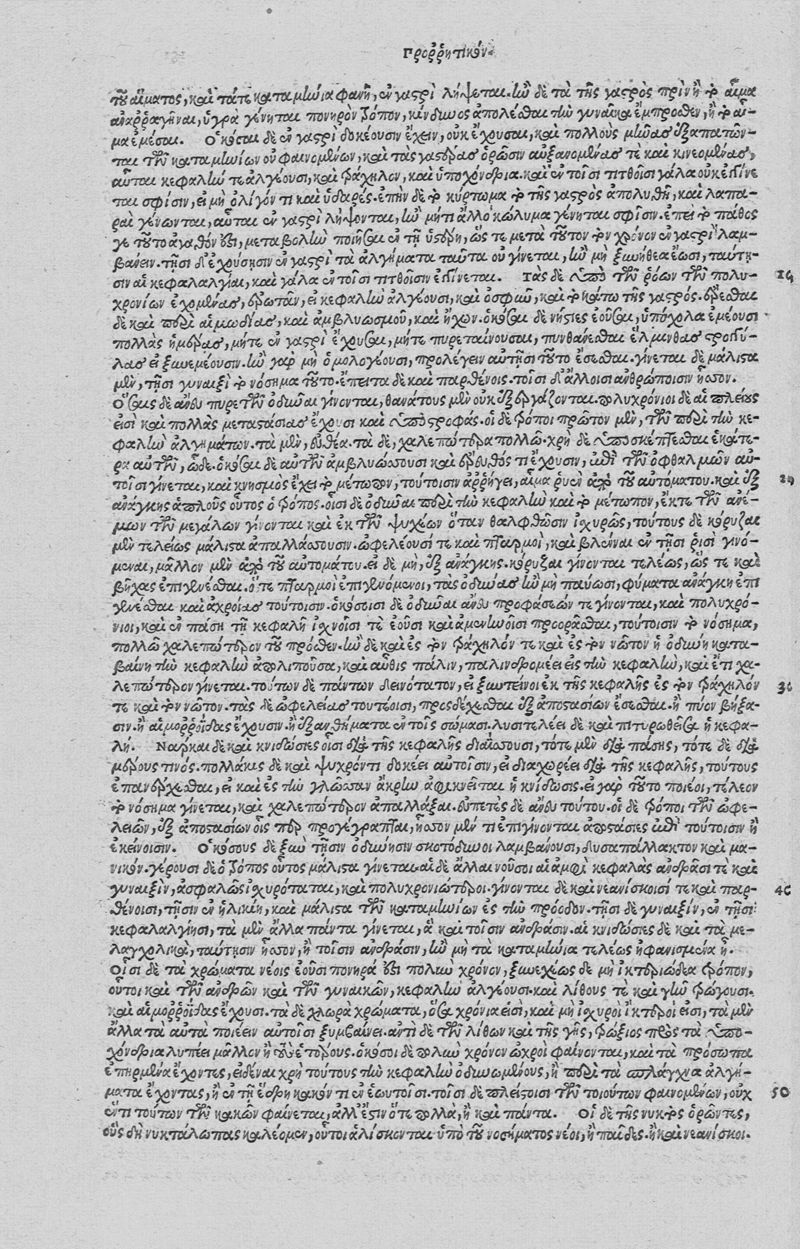 Προῤῥητικόν.
τοῦ αἵματος, καὶ τά τε καταμήνια φανῇ, ἐν γαστρὶ λήψεται. ἢν δὲ τὰ τῆς γαστρὸς πρὶν ἢ τὸ αἷμα
ἀναῤῥαγῆναι, ὑγρὰ γένηται πονηρὸν τρόπον, κίνδυνος ἀπολέσθαι τὴν γυναῖκα ἔμπροσθεν, ἢ τὸ αἷ-
μα ἐμέσαι. Ὁκόσαι δὲ ἐν γαστρὶ δοκέουσιν ἔχειν, οὐκ ἔχουσαι, καὶ πολλοὺς μῆνας ἐξαπατῶν-
ται τῶν καταμηνίων οὐ φαινομένων, καὶ τὰς γαστέρας ὁρῶσιν αὐξανομένας τε καὶ κινεομένας,
αὗται κεφαλήν τε ἀλγέουσι, καὶ τράχηλον, καὶ ὑποχόνδρια. καὶ ἐν τοῖσι τιτθοῖσι γάλα οὐκ ἐγγίνε
ται σφίσιν, εἰ μὴ ὀλίγον τι καὶ ὑδαρές. ἐπὴν δὲ τὸ κύρτωμα τὸ τῆς γαστρὸς ἀπολυθῇ, καὶ λαπα-
ραὶ γένωνται, αὗται ἐν γαστρὶ λήψονται, ἢν μή τι ἄλλο κώλυμα γένηται σφίσιν. ἐπεὶ τὸ πάθος
γε τοῦτο ἀγαθόν ἐστι, μεταβολὴν ποιῆσαι ἐν τῇ ὑστέρῃ, ὥς τε μετὰ τοῦτον τὸν χρόνον ἐν γαστρὶ λαμ-
βάνειν. τῇσι δ' ἐχούσῃσιν ἐν γαστρὶ τὰ ἀλγήματα ταῦτα οὐ γίνεται, ἢν μὴ ξυνήθεα ἔωσι, ταύτῃ-
σιν αἱ κεφαλαλγίαι, καὶ γάλα ἐν τοῖσι τιτθοῖσιν ἐγγίνεται. Τὰς δὲ ὑπὸ τῶν ῥόων τῶν πολυ- 26
χρονίων ἐχομένας, ἐρωτᾶν, εἰ κεφαλὴν ἀλγέουσι, καὶ ὀσφῦν, καὶ τὸ κάτω τῆς γαστρός. ἔρεσθαι
δὲ καὶ περὶ αἱμωδίας, καὶ ἀμβλυωσμοῦ, καὶ ἤχων. ὁκόσαι δὲ νήστιες ἐοῦσαι, ὑπόχολα ἐμέουσι
πολλὰς ἡμέρας, μήτε ἐν γαστρὶ ἔχουσαι, μήτε πυρεταίνουσαι, πυνθάνεσθαι ἕλμινθας στρογγύ-
λας εἰ ξυνεμέουσιν. ἢν γὰρ μὴ ὁμολογέουσι, προλέγειν αὐτῇσι τοῦτο ἔσεσθαι. γίνεται δὲ μάλιστα
μὲν, τῇσι γυναιξὶ τὸ νόσημα τοῦτο. ἔπειτα δὲ καὶ παρθένοις. τοῖσι δ' ἄλλοισι ἀνθρώποισιν ἧσσον.
Ὅσαι δὲ ἄνευ πυρετῶν ὀδύναι γίνονται, θανάτους μὲν οὐκ ἐξεργάζονται. πολυχρόνιοι δὲ αἱ πλεῖσται
εἰσὶ καὶ πολλὰς μεταστάσιας ἔχουσι καὶ ὑποστροφάς. οἱ δὲ τρόποι πρῶτον μὲν, τῶν περὶ τὴν κε-
φαλὴν ἀλγημάτων. τὰ μὲν, εὐήθεα. τὰ δὲ, χαλεπώτερα πολλῷ. χρὴ δὲ ὑποσκέπτεσθαι ἑκάτε-
ρα αὐτῶν, ὧδε. ὁκόσαι δὲ αὐτῶν ἀμβλυώσσουσι καὶ ἔρευθός τι ἔχουσιν, ἐπὶ τῶν ὀφθαλμῶν αὐ-
τοῖσι γίνεται, καὶ κνησμὸς ἔχει τὸ μέτωπον, τούτοισιν ἀρρήγει, αἷμα ῥυὲν ἀπὸ τοῦ αὐτομάτου. καὶ ἐξ 29
ἀνάγκης ἁπλοῦς οὗτος ὁ τρόπος. οἷσι δὲ ὀδύναι περὶ τὴν κεφαλὴν καὶ τὸ μέτωπον, ἔκ τε τῶν ἀνέ-
μων τῶν μεγάλων γίνονται καὶ ἐκ τῶν ψυχέων ὅταν θαλφθῶσιν ἰσχυρῶς, τούτους δὲ κόρυζαι
μὲν τελείως μάλιστα ἀπαλλάσσουσιν. ὠφελέουσί τε καὶ πταρμοὶ, καὶ βλένναι ἐν τῇσι ῥισὶ γινό-
μεναι, μᾶλλον μὲν ἀπὸ τοῦ αὐτομάτου. εἰ δὲ μὴ, ἐξ ἀνάγκης. κόρυζαι γίνονται τελέως, ὥς τε καὶ
βῆχας ἐπιγενέσθαι. ὅ τε πταρμοὶ ἐπιγενόμενοι, τὰς ὀδύνας ἢν μὴ παύωσι, φύματα ἀνάγκη ἐπι
γενέσθαι καὶ ἀχροίας τούτοισιν. ὁκόσοισι δὲ ὀδύναι ἄνευ προφασέων τε γίνονται, καὶ πολυχρό-
νιοι, καὶ ἐν πάσῃ τῇ κεφαλῇ ἰσχνοῖσί τε ἐοῦσι καὶ ἀμενηνοῖσι προσορᾶσθαι, τούτοισιν τὸ νόσημα,
πολλῷ χαλεπώτερον τοῦ πρόσθεν. ἢν δὲ καὶ ἐς τὸν τράχηλόν τε καὶ ἐς τὸν νῶτον ἡ ὀδύνη κατα-
βαίνῃ τὴν κεφαλὴν ἀπολιποῦσα, καὶ αὖθις πάλιν, παλινδρομέει εἰς τὴν κεφαλὴν, καὶ ἔτι χα-
λεπώτερον γίνεται. τούτων δὲ πάντων δεινότατον, εἰ ξυντείνοι ἐκ τῆς κεφαλῆς ἐς τὸν τράχηλόν 36
τε καὶ τὸν νῶτον. τὰς δὲ ὠφελείας τουτέοισι, προσδέχεσθαι ἐξ ἀποστασίων ἔσεσθαι. ἢ πύον βήξα-
σιν. ἢ αἱμορροΐδας ἔχουσιν. ἢ ἐξανθήματα ἐν τοῖς σώμασι. λυσιτελέει δὲ καὶ πιτυρωθεῖσα ἡ κεφα-
λή. Νάρκαι δὲ καὶ κνιδώσιες οἷσι διὰ τῆς κεφαλῆς διαΐσσουσι, τότε μὲν διὰ πάσης, τότε δὲ διὰ
μέρους τινός. πολλάκις δὲ καὶ ψυχρόν τι δοκέει αὐτοῖσιν, εἰ διαχωρέει διὰ τῆς κεφαλῆς, τούτους
ἐπανέρχεσθαι, εἰ καὶ ἐς τὴν γλῶσσαν ἄκρην ἀφικνεῖται ἡ κνίδωσις. εἰ γὰρ τοῦτο ποιέοι, τέλεον
τὸ νόσημα γίνεται, καὶ χαλεπώτερον ἀπαλλάξαι. εὐπετὲς δὲ ἄνευ τούτου. οἱ δὲ τρόποι τῶν ὠφε-
λειῶν, ἐξ ἀποστασίων οἷς περ προγέγραπται, ἧσσον μέν τι ἐπιγίνονται ἀποστάσιες ἐπὶ τούτοισιν ἢ
ἐκείνοισιν. Ὁκόσους δὲ ξὺν τῇσιν ὀδύνῃσιν σκοτόδινοι λαμβάνουσι, δυσαπάλλακτον καὶ μα-
νικόν. γέρουσι δὲ ὁ τρόπος οὗτος μάλιστα γίνεται. αἱ δὲ ἄλλαι νοῦσοι αἱ ἀμφὶ κεφαλὰς ἀνδράσι τε καὶ
γυναιξὶν, ἀσφαλῶς ἰσχυρόταται, καὶ πολυχρονιώτεροι. γίνονται δὲ καὶ νεανίσκοισί τε καὶ παρ- 46
θένοισι, τῇσιν ἐν ἡλικίῃ, καὶ μάλιστα τῶν καταμηνίων ἐς τὴν πρόσοδον. τῇσι δὲ γυναιξὶν, ἐν τῇσι
κεφαλαλγίῃσι, τὰ μὲν ἄλλα πάντα γίνεται, ἃ καὶ τοῖσιν ἀνδράσιν. αἱ κνιδώσιες δὲ καὶ τὰ με-
λαγχολικὰ, ταύτῃσιν ἧσσον, ἢ τοῖσιν ἀνδράσιν, ἢν μὴ τὰ καταμήνια τελέως ἠφανισμένα ᾖ.
Οἷσι δὲ τὰ χρώματα νέοις ἐοῦσι πονηρά ἐστι πολὺν χρόνον, ξυνεχέως δὲ μὴ ἰκτεριώδεα τρόπον,
οὗτοι καὶ τῶν ἀνδρῶν καὶ τῶν γυναικῶν, κεφαλὴν ἀλγέουσι. καὶ λίθους τε καὶ γῆν τρώγουσι.
καὶ αἱμοῤῥοΐδας ἔχουσι. τὰ δὲ χλωρὰ χρώματα, ὅσα χρόνια εἰσὶ, καὶ μὴ ἰσχυροὶ ἴκτεροί εἰσι, τὰ μὲν
ἄλλα τὰ αὐτὰ ποιέειν αὐτοῖσι ξυμβαίνει. ἀντὶ δὲ τῶν λίθων καὶ τῆς γῆς, τρώξιος πρὸς τὰ ὑπο-
χόνδρια λυπέει μᾶλλον ἢ τοὺς ἑτέρους. ὁκόσοι δὲ πολὺν χρόνον ὠχροὶ φαίνονται, καὶ τὰ πρόσωπα
ἐπηρμένα ἔχοντες, εἰδέναι χρὴ τούτους τὴν κεφαλὴν ὀδυνωμένους, ἢ περὶ τὰ σπλάγχνα ἀλγή-
ματα ἔχοντας, ἢ ἐν τῇ ἕδρῃ κακόν τι ἐν ἑωυτοῖσι. τοῖσι δὲ πλείστοισι τῶν τοιούτων φαινομένων, οὐχ 50
ἕν τι τούτων τῶν κακῶν φαίνεται, ἀλλ' ἔστιν ὅτε πολλὰ, ἢ καὶ πάντα. Οἱ δὲ τῆς νυκτὸς ὁρῶντες,
οὓς δὴ νυκτάλωπας καλέομεν, οὗτοι ἁλίσκονται ὑπὸ τοῦ νοσήματος νέοι, ἢ παῖδες. ἢ καὶ νεανίσκοι.